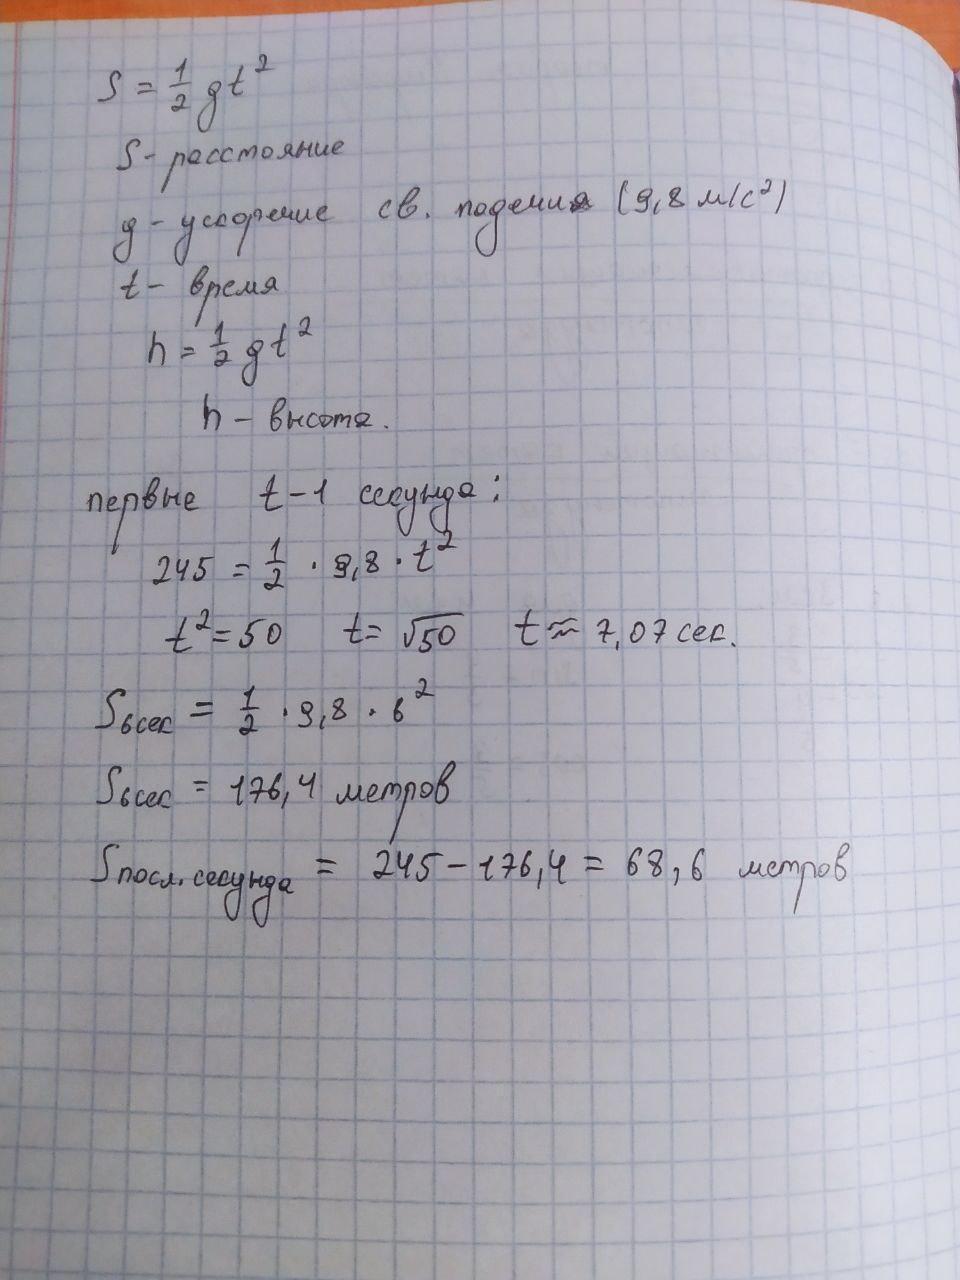 S = 1/2 gt²
S - расстояние
g - ускорение св. падения (9,8 м/с²)
t - время
h = 1/2 gt²
h - высота.
первые t-1 секунда:
245 = 1/2 · 9,8 · t²
t² = 50 t = √50 t ≈ 7,07 сек.
S6сек = 1/2 · 9,8 · 6²
S6сек = 176,4 метров
Sпосл. секунда = 245 - 176,4 = 68,6 метров